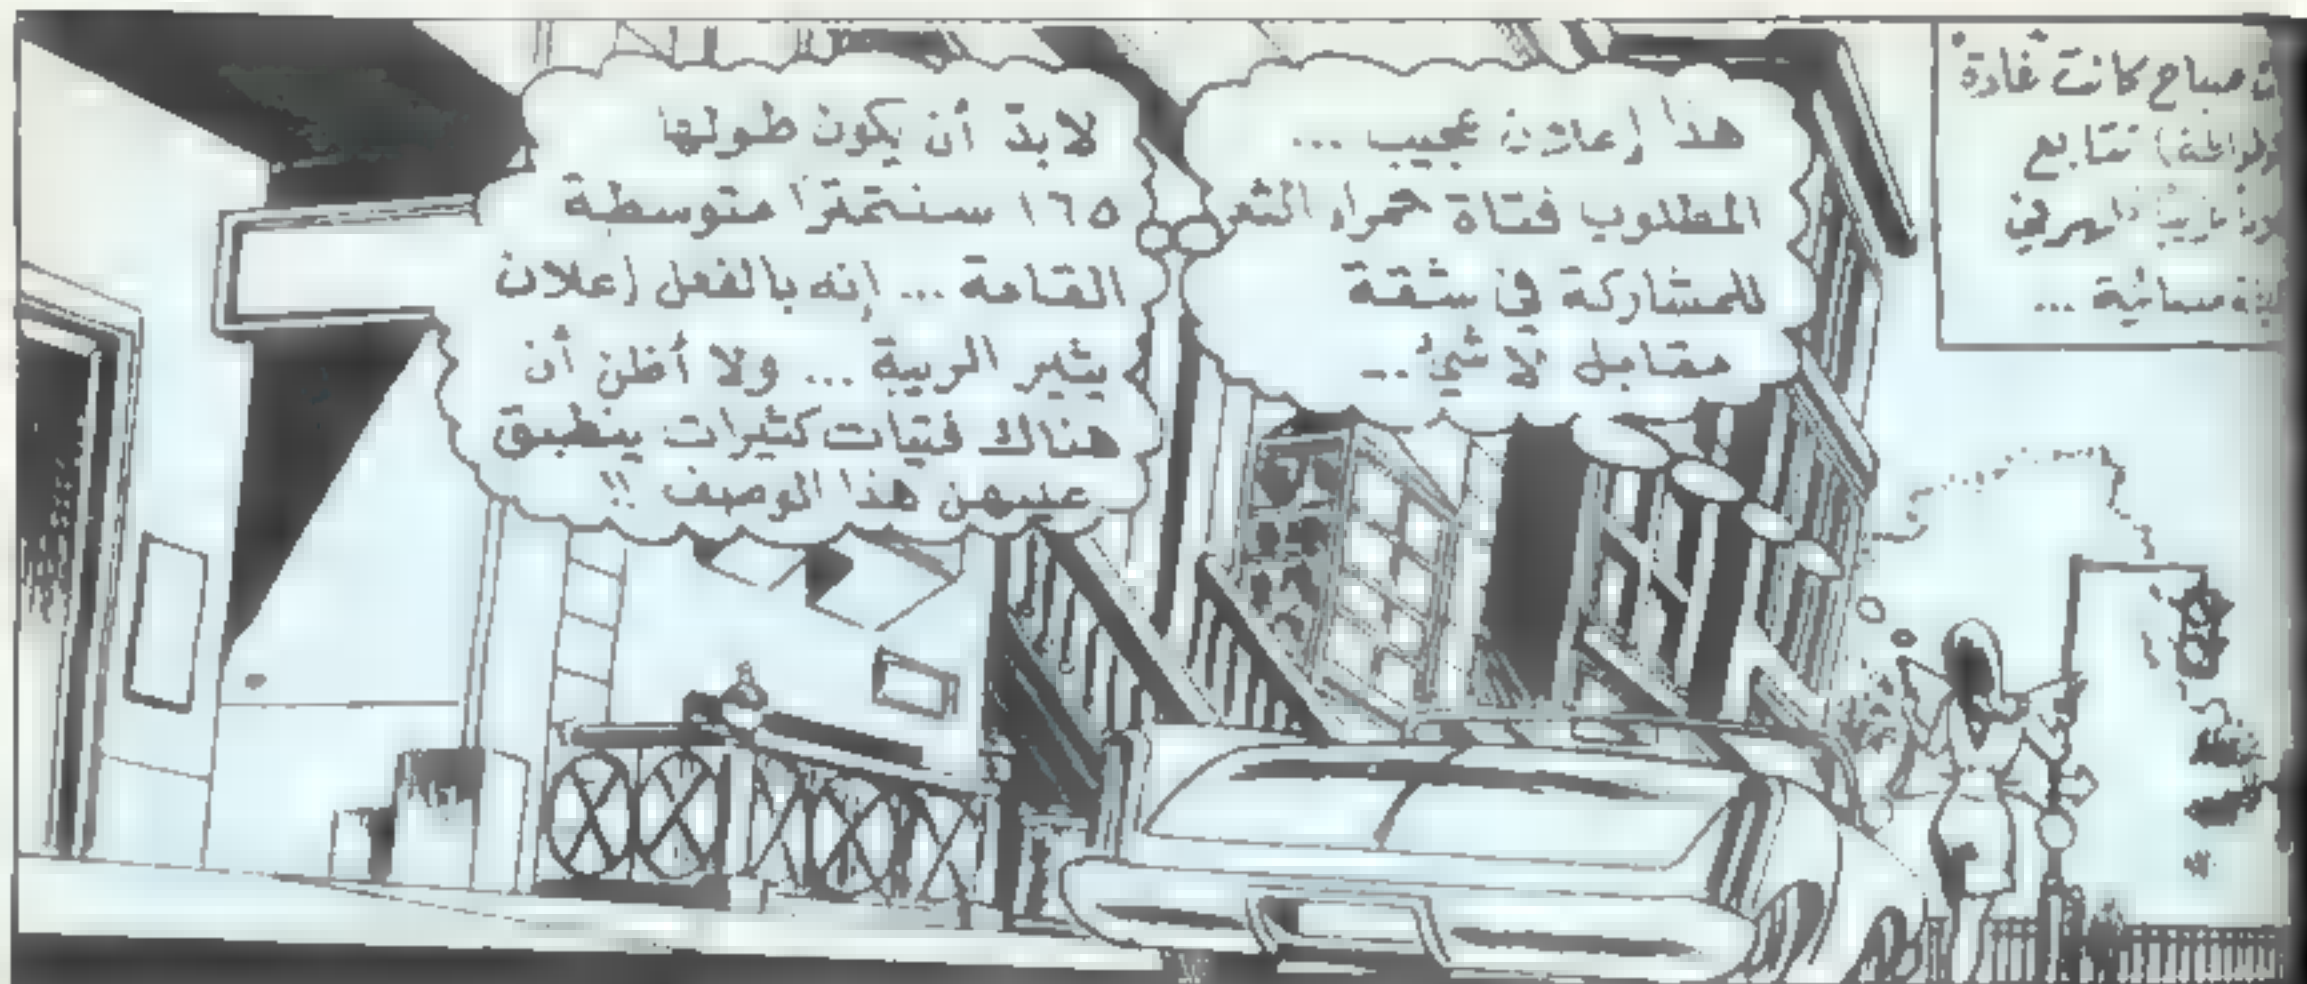 صباح كانت غادة
تتابع
مسائية ...
هذا إعلان عجيب ...
المطلوب فتاة حمراء الشعر
للمشاركة في شقة
مقابل لا شئ ..
لابدّ أن يكون طولها
١٦٥ سنتمترًا متوسطة
القامة ... إنه بالفعل إعلان
يثير الريبة ... ولا أظن أن
هناك فتيات كثيرات ينطبق
عليهن هذا الوصف !!